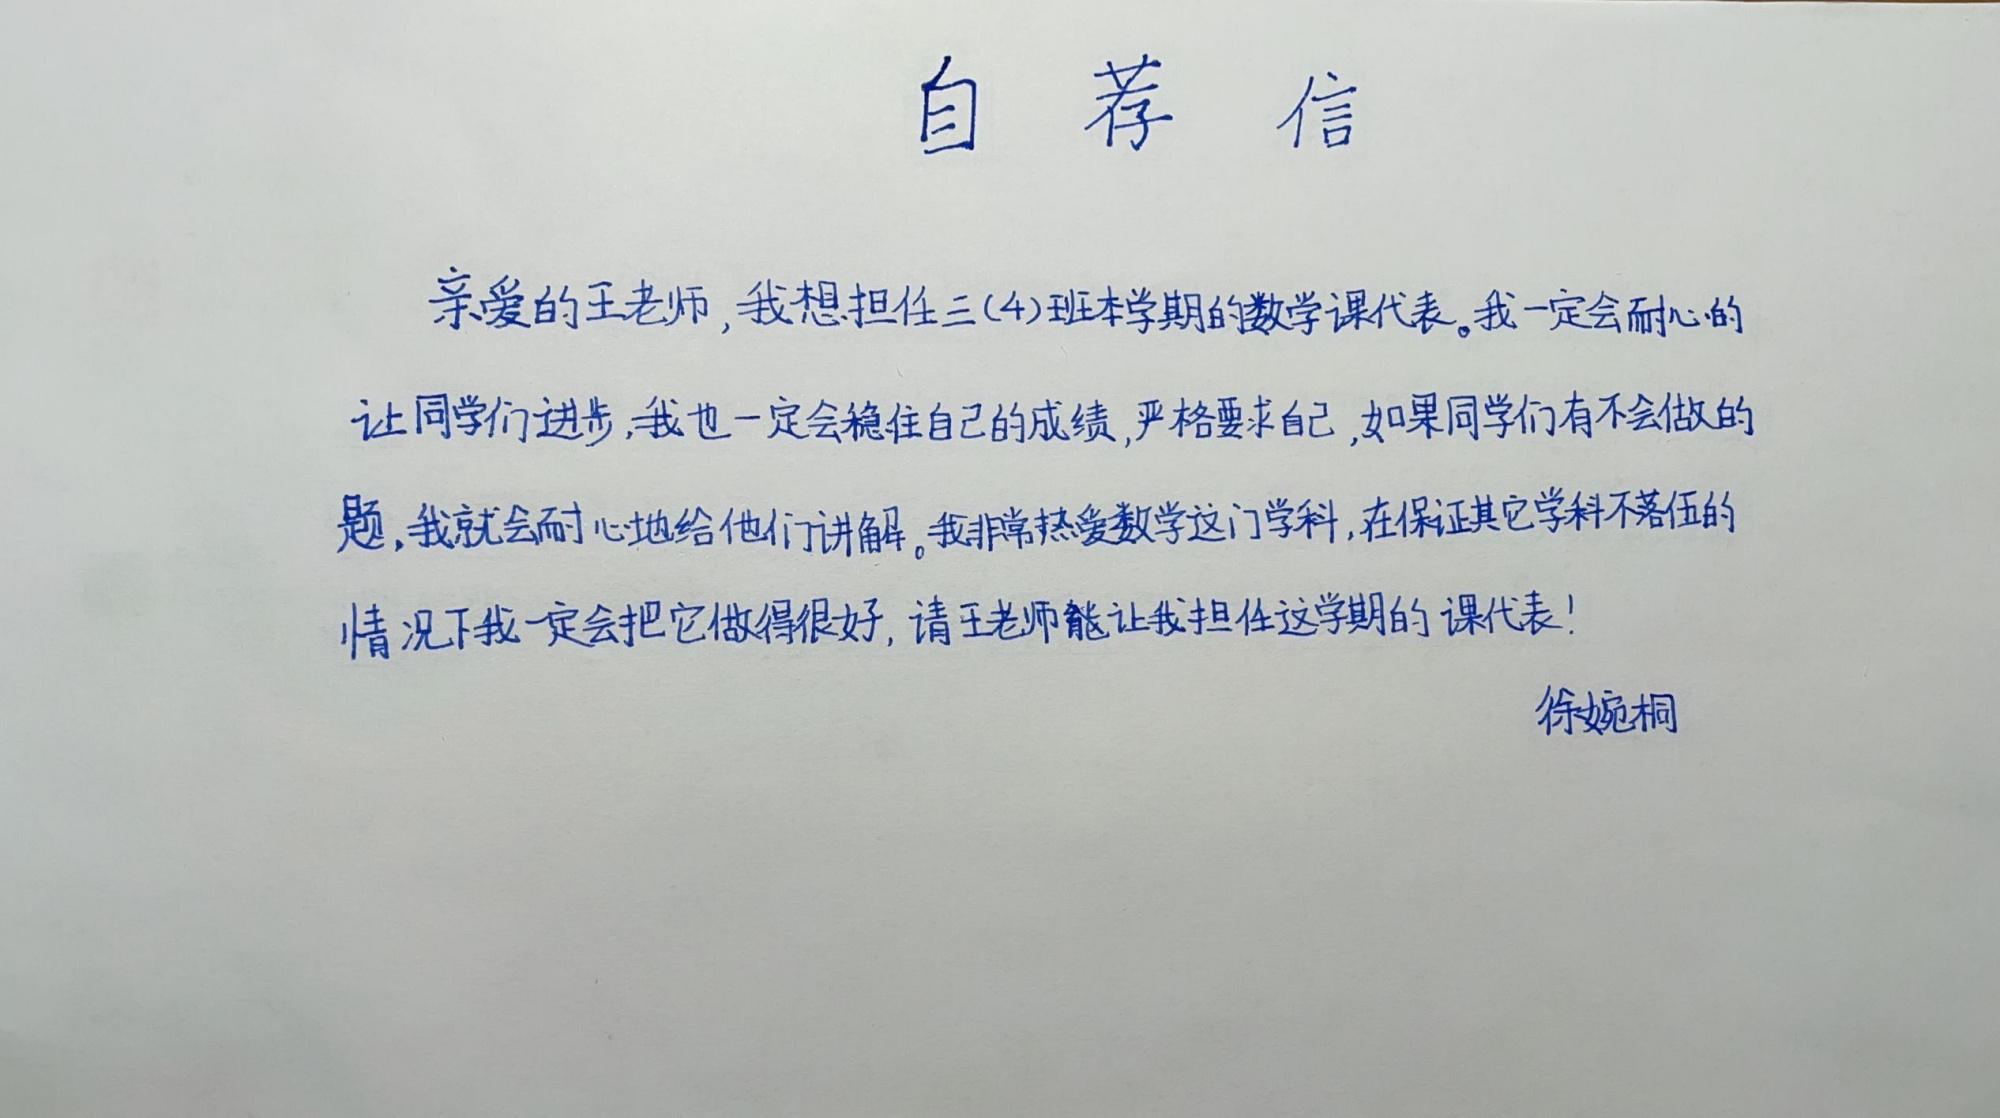 自荐信
亲爱的王老师,我想担任三(4)班本学期的数学课代表。我一定会耐心的
让同学们进步,我也一定会稳住自己的成绩,严格要求自己,如果同学们有不会做的
题,我就会耐心地给他们讲解。我非常热爱数学这门学科,在保证其它学科不落伍的
情况下我一定会把它做得很好,请王老师能让我担任这学期的课代表!
徐婉桐